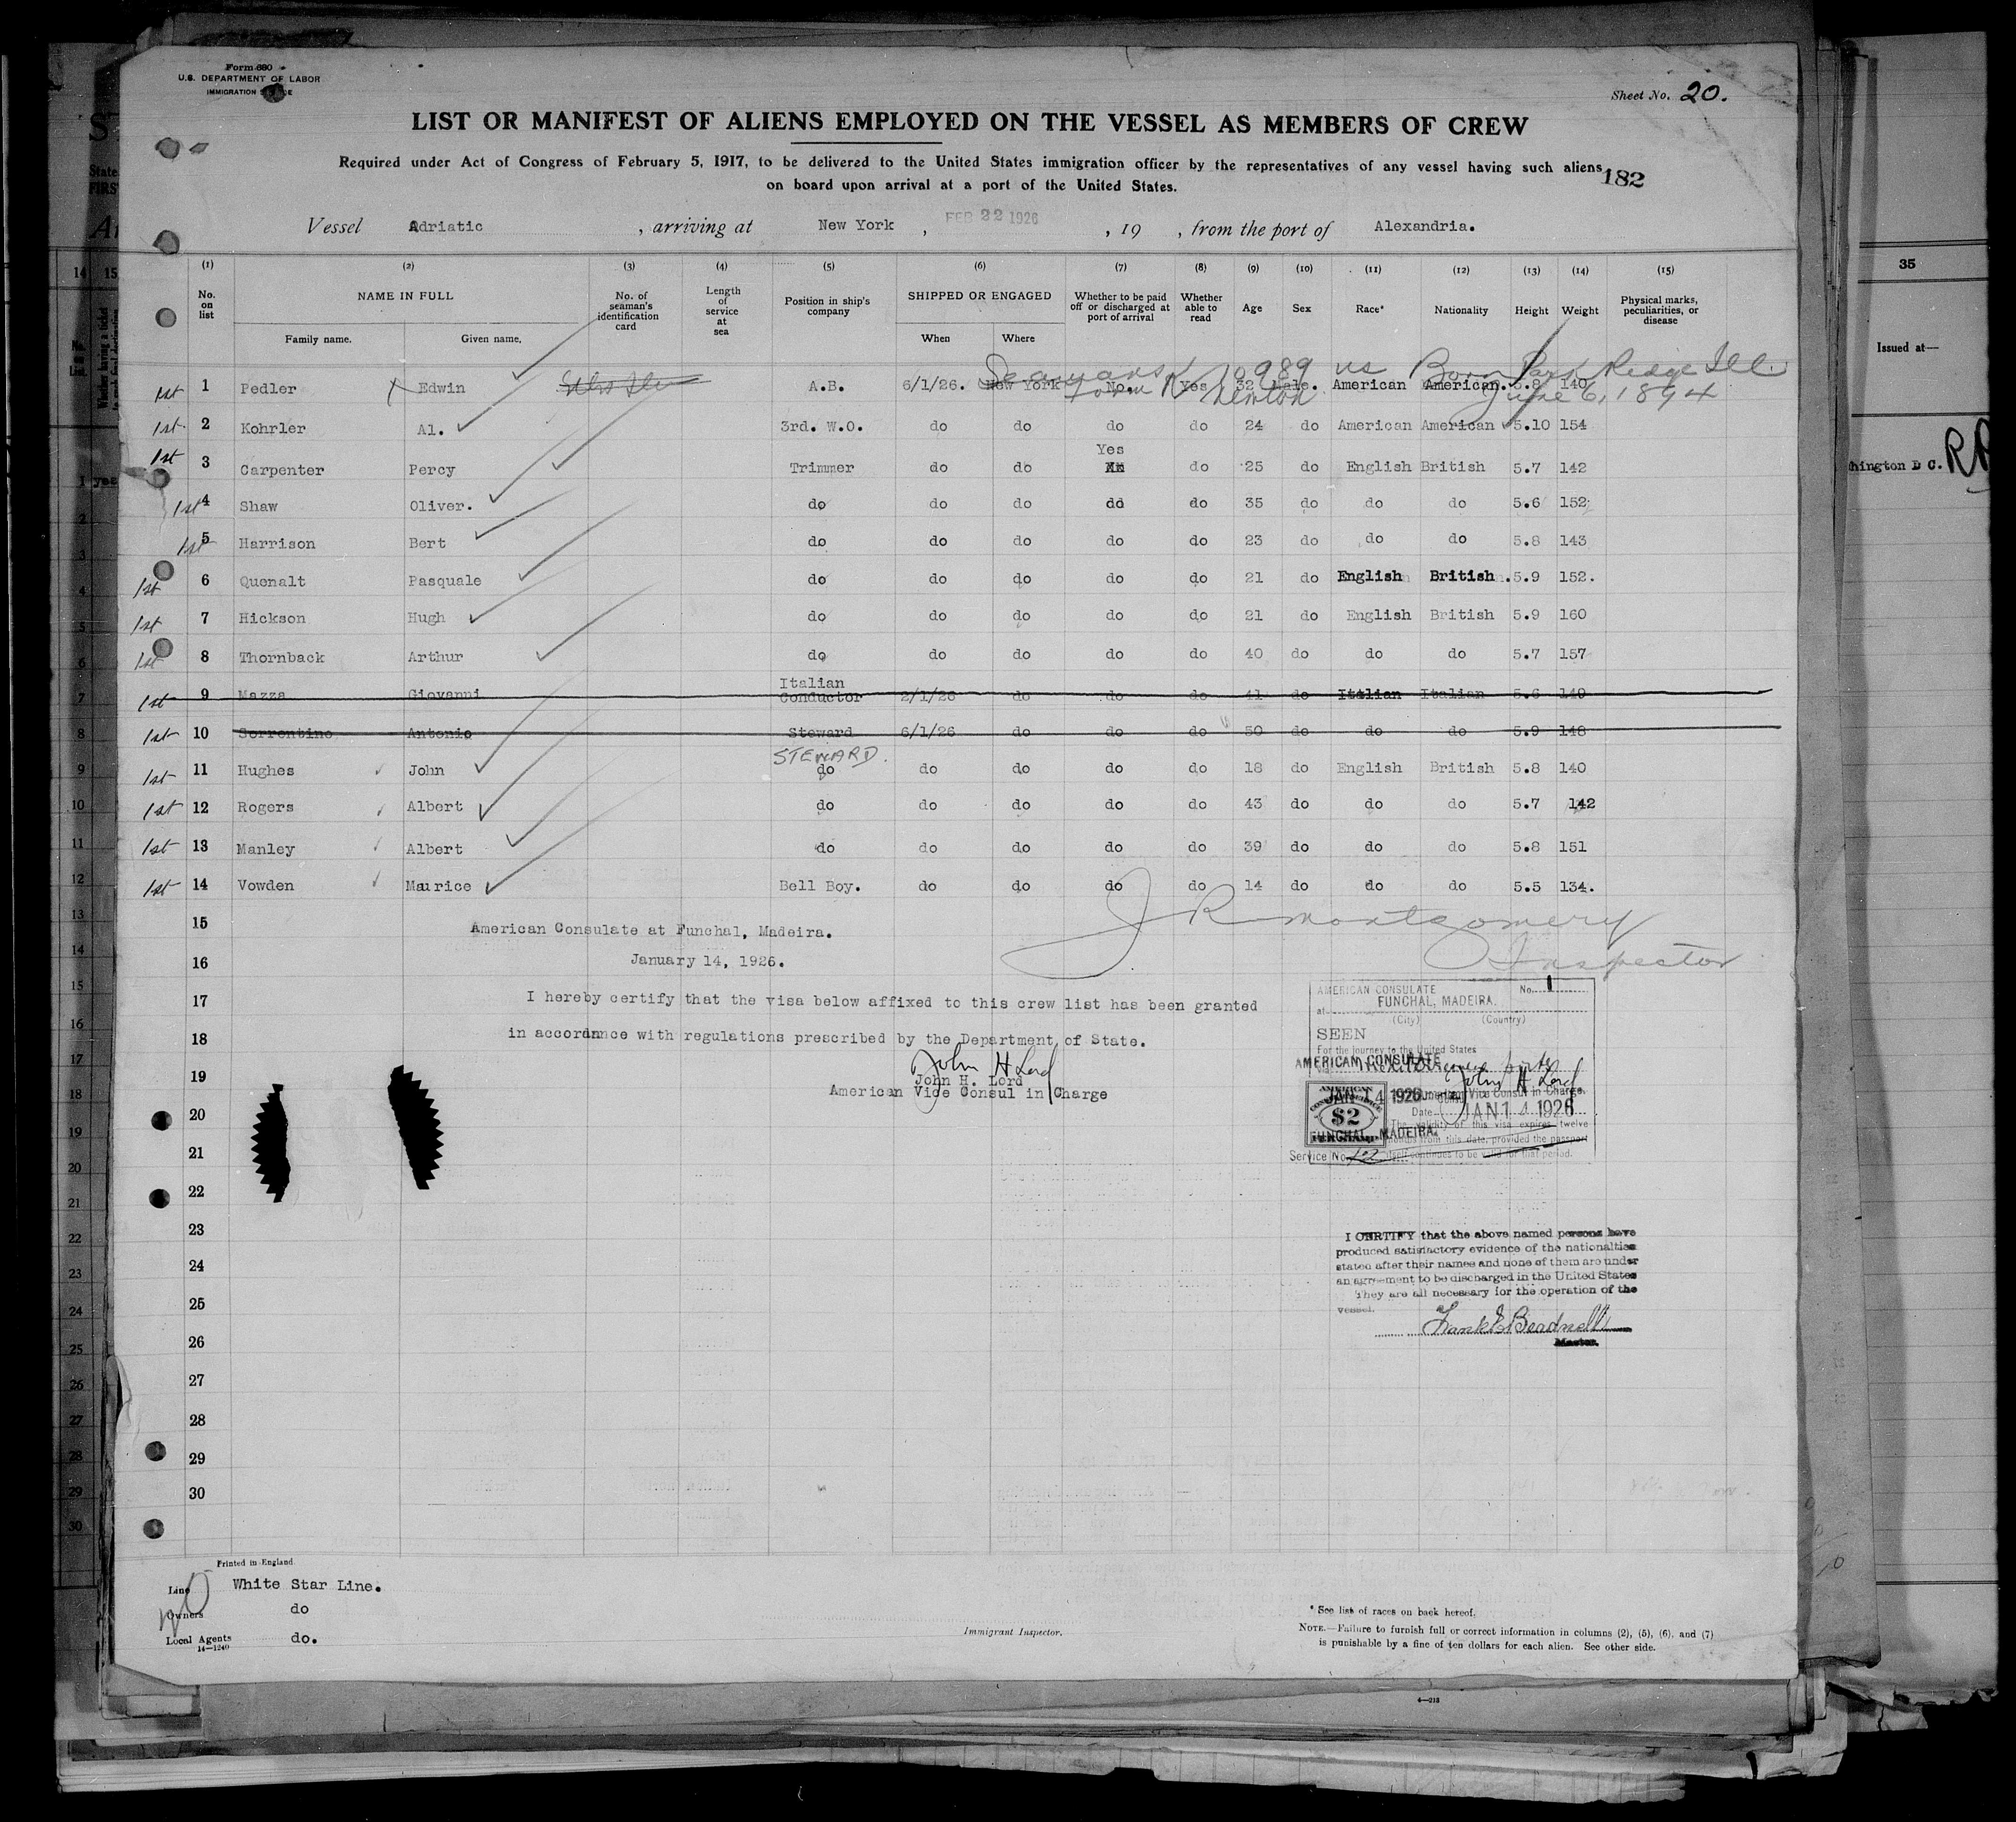 Form 680
U.S. DEPARTMENT OF LABOR
IMMIGRATION
Sheet No. 20.
LIST OR MANIFEST OF ALIENS EMPLOYED ON THE VESSEL AS MEMBERS OF CREW
Required under Act of Congress of February 5, 1917, to be delivered to the United States immigration officer by the representatives of any vessel having such aliens
on board upon arrival at a port of the United States.
182
Vessel Adriatic , arriving at New York , FEB 22 1926 , 19 , from the port of Alexandria.
(1) (2) (3) (4) (5) (6) (7) (8) (9) (10) (11) (12) (13) (14) (15)
No. on list NAME IN FULL Family name. Given name. No. of seaman's identification card Length of service at sea Position in ship's company SHIPPED OR ENGAGED When Where Whether to be paid off or discharged at port of arrival Whether able to read Age Sex Race* Nationality Height Weight Physical marks, peculiarities, or disease
Seamans 10989 us Born Park Ridge Ill.
1st 1 Pedler Edwin A.B. 6/1/26. New York No. Yes 32 Male. American American. 5.8 140
June 6, 1894
1st 2 Kohrler Al. 3rd. W.O. do do do do 24 do American American 5.10 154
Yes
1st 3 Carpenter Percy Trimmer do do do 25 do English British 5.7 142
1st 4 Shaw Oliver. do do do do do 35 do do do 5.6 152
1st 5 Harrison Bert do do do do do 23 do do do 5.8 143
1st 6 Quenalt Pasquale do do do do do 21 do English British. 5.9 152.
1st 7 Hickson Hugh do do do do do 21 do English British 5.9 160
1st 8 Thornback Arthur do do do do do 40 do do do 5.7 157
1st 9 Mazza Giovanni Italian Conductor 2/1/26 do do do 41 do Italian Italian 5.6 149
1st 10 Sorrentino Antonio Steward 6/1/26 do do do 50 do do do 5.9 148
STEWARD.
1st 11 Hughes John do do do do do 18 do English British 5.8 140
1st 12 Rogers Albert do do do do do 43 do do do 5.7 142
1st 13 Manley Albert do do do do do 39 do do do 5.8 151
1st 14 Vowden Maurice Bell Boy. do do do do 14 do do do 5.5 134.
J R Montgomery
Inspector
15
American Consulate at Funchal, Madeira.
16
January 14, 1926.
17
I hereby certify that the visa below affixed to this crew list has been granted
18
in accordance with regulations prescribed by the Department of State.
19
John H Lord
John H. Lord
American Vice Consul in Charge
AMERICAN CONSULATE No. 1
at FUNCHAL, MADEIRA.
(City) (Country)
SEEN
For the journey to the United States
AMERICAN CONSULATE
John H Lord
JAN 14 1926
American Vice Consul in Charge.
Date JAN 14 1926
AMERICAN
$2
The validity of this visa expires twelve
FUNCHAL, MADEIRA.
months from this date, provided the passport
Service No. 12 itself continues to be valid for that period.
20
21
22
23
24
25
26
27
28
29
30
I CERTIFY that the above named persons have
produced satisfactory evidence of the nationalties
stated after their names and none of them are under
an agreement to be discharged in the United States
They are all necessary for the operation of the
vessel.
Frank E Beadnell
Master.
Printed in England
Line White Star Line.
Owners do
Local Agents do.
14—1240
Immigrant Inspector.
* See list of races on back hereof.
NOTE.—Failure to furnish full or correct information in columns (2), (5), (6), and (7)
is punishable by a fine of ten dollars for each alien. See other side.
35
Issued at—
hington D C.